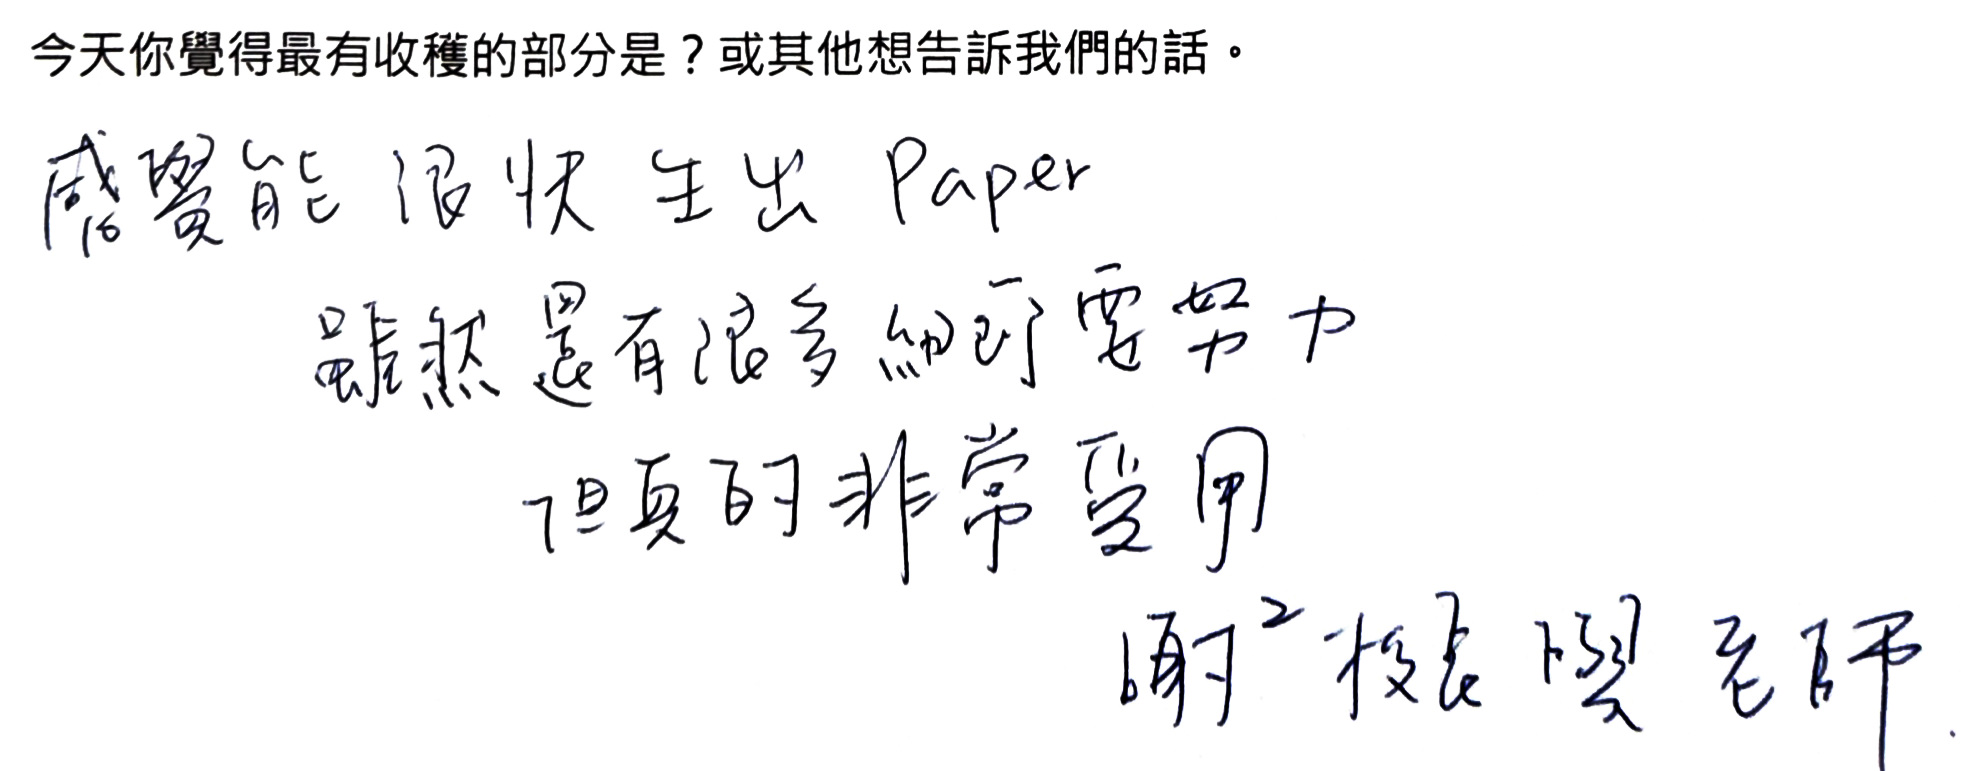 今天你覺得最有收穫的部分是？或其他想告訴我們的話。
感覺能很快生出 Paper
雖然還有很多細節要努力
但真的非常受用
謝² 校長與老師.